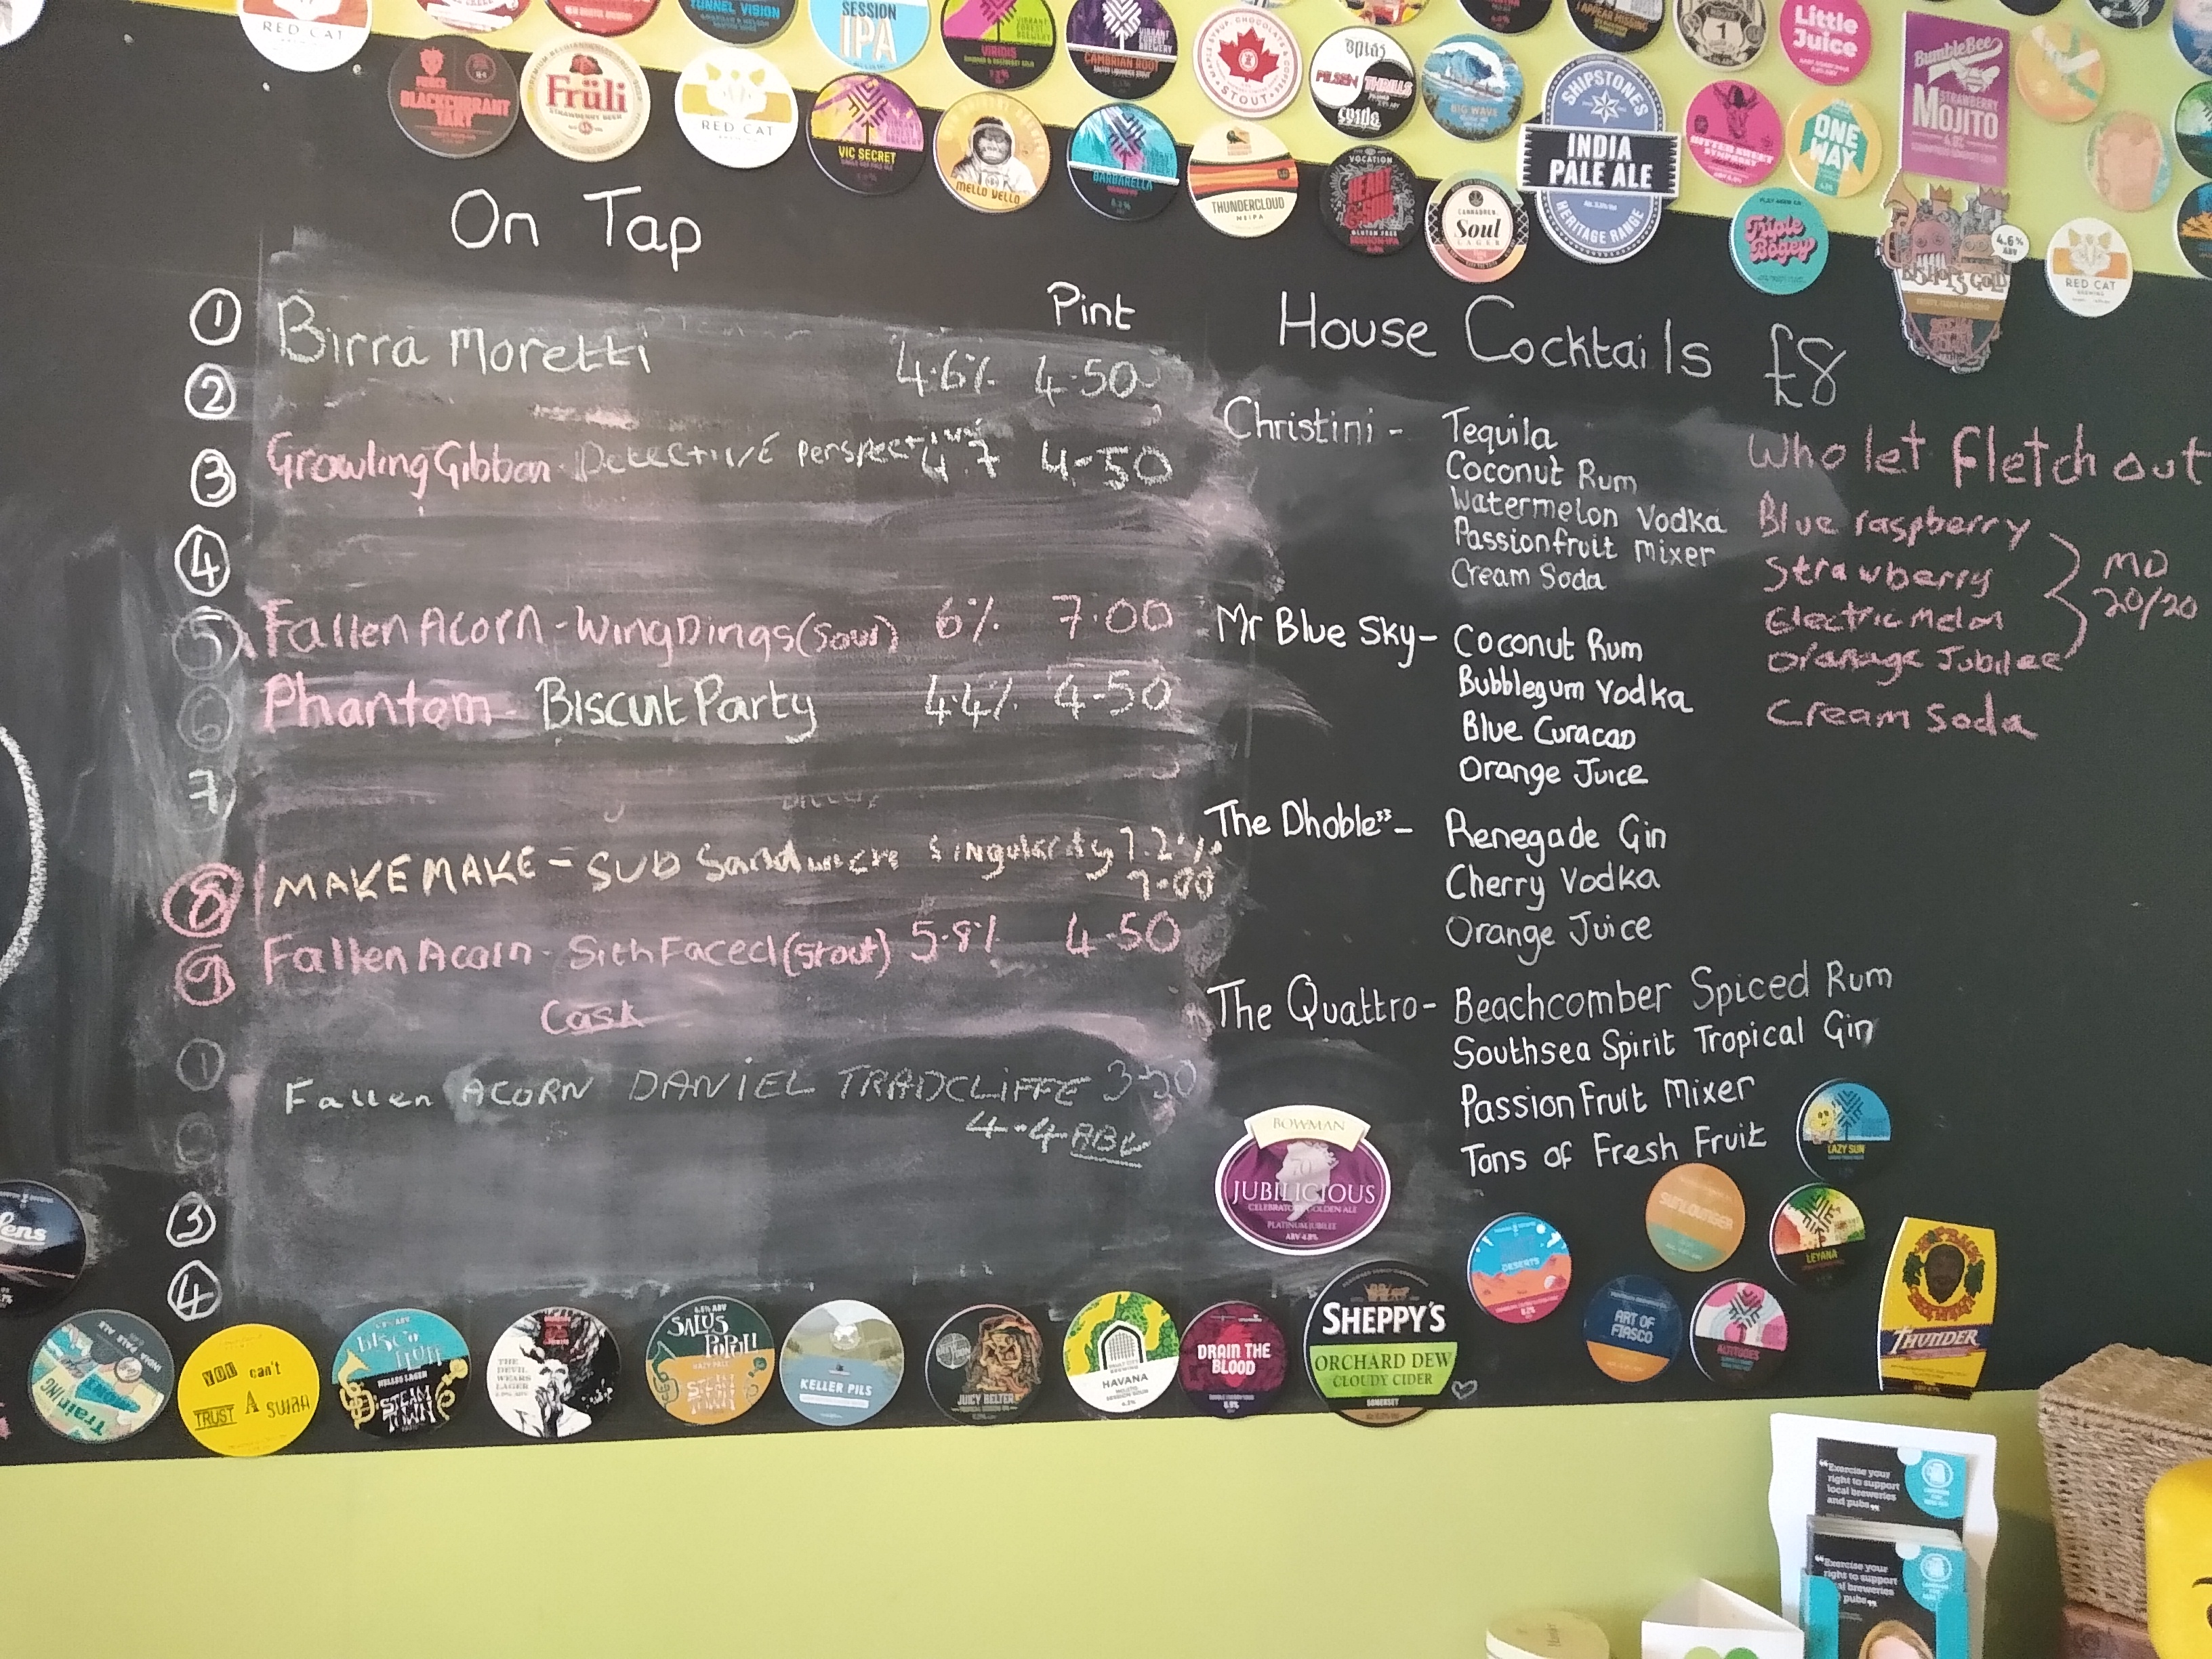 RED CAT
TUNNEL VISION
SESSION
IPA
VIRIDIS
CAMBRIAN ROOT
STOUT
PILSEN THRILLS
BIG WAVE
1
Little
Juice
BumbleBee
STRAWBERRY
MOJITO
BLACKCURRANT
TART
Früli
STRAWBERRY BEER
RED CAT
VIC SECRET
MELLO YELLO
BARBARELLA
THUNDERCLOUD
NEIPA
VOCATION
HEART
GLUTEN FREE
SESSION IPA
Soul
LAGER
SHIPSTONES
INDIA
PALE ALE
HERITAGE RANGE
BITTER SWEET
SYMPHONY
ONE
WAY
Triple
Bogey
BISHOPS GOLD
4.6%
ABV
RED CAT
BREWING
On Tap
Pint
① Birra Moretti 4.6% 4.50
②
③ Growling Gibbon - Detective Perspective 4.7 4-50
④
⑤ Fallen Acorn - WingDings (Sour) 6% 7.00
⑥ Phantom - Biscuit Party 4.4% 4-50
7
⑧ MAKEMAKE - SUB Sandwich Singularity 7.2%
7-00
⑨ Fallen Acorn - Sith Faced (Stout) 5.8% 4.50
Cask
① Fallen ACORN DANIEL TRADCLIFFE 3-50
4.4 ABV
③
④
House Cocktails £8
Christini - Tequila
Coconut Rum
Watermelon Vodka
Passionfruit Mixer
Cream Soda
Mr Blue Sky - Coconut Rum
Bubblegum Vodka
Blue Curacao
Orange Juice
The Dhoble" - Renegade Gin
Cherry Vodka
Orange Juice
The Quattro - Beachcomber Spiced Rum
Southsea Spirit Tropical Gin
Passion Fruit Mixer
Tons of Fresh Fruit
Who let Fletch out
Blue raspberry
Strawberry
Electric Melon
Orange Jubilee
MD
20/20
Cream Soda
BOWMAN
70
JUBILICIOUS
CELEBRATORY GOLDEN ALE
PLATINUM JUBILEE
ABV 4.8%
LAZY SUN
SUNLOUNGER
LEYANA
DESERTS
ART OF
FIASCO
ALTITUDES
THUNDER
Training
INDIA PALE ALE
YOU can't
TRUST A SWAN
DISCO
HELLES LAGER
STEAM
TOWN
THE
DEVIL
WEARS
LAGER
SALUS
POPULI
HAZY PALE
STEAM
TOWN
KELLER PILS
JUICY BELTER
HAVANA
MOJITO
SESSION SOUR
DRAIN THE
BLOOD
SHEPPY'S
ORCHARD DEW
CLOUDY CIDER
SOMERSET
"Exercise your
right to support
local breweries
and pubs"
"Exercise your
right to support
local breweries
pubs"